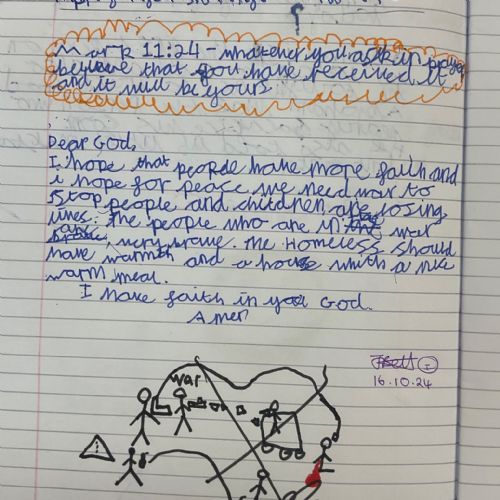 Mark 11:24 - whatever you ask in prayer
believe that you have received it
and it will be yours.
Dear God,
I hope that people have more faith and
i hope for peace we need war to
stop people and children are losing
lives. The people who are in the war
are very brave. The Homeless should
have warmth and a house whith a nice
warm meal.
I have faith in you God.
Amen
war
16.10.24